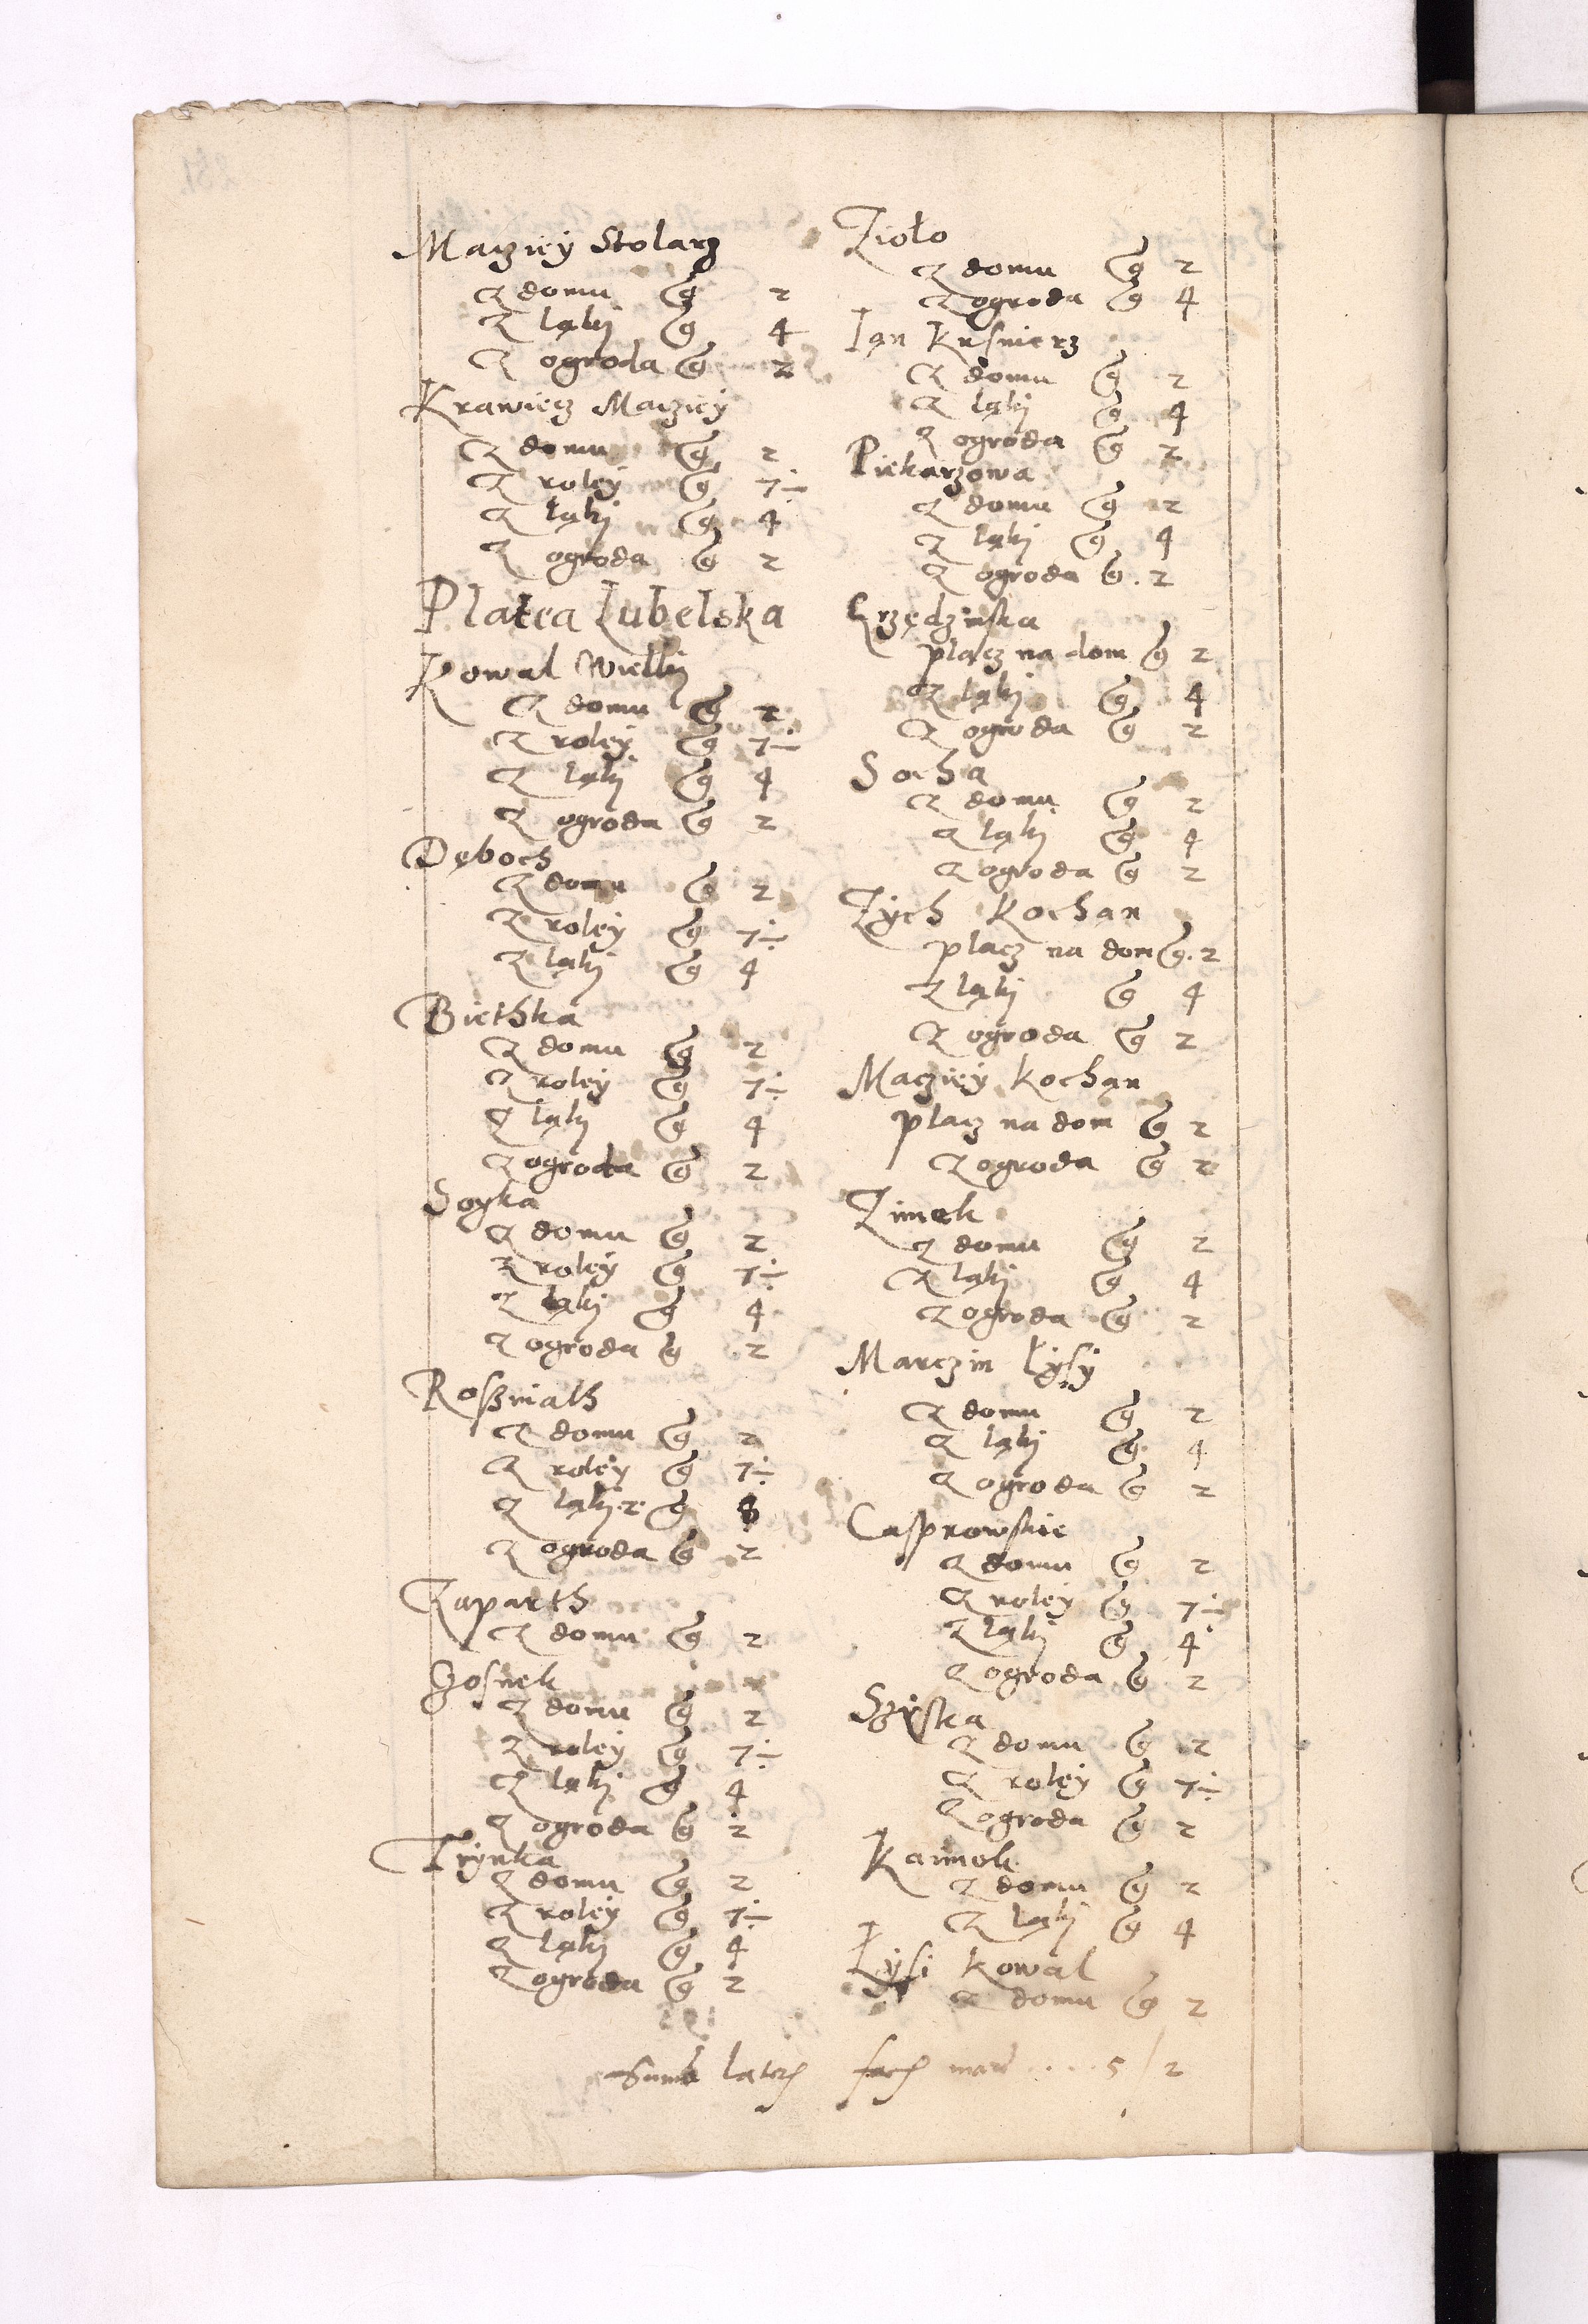 Macziey Stolarz
Z domu g 2
Z łąki g 4
Z ogroda g 2
Krawiecz Macziey
Z domu g 2
Z roley g 7÷
Z łąki g 4
Z ogroda g 2
Platea Lubelska
Kowal Wielki
Z domu g 2
Z roley g 7÷
Z łąki g 4
Z ogroda g 2
Dęboch
Z domu g 2
Z roley g 7÷
Z łąki g 4
Biethka
Z domu g 2
Z roley g 7÷
Z łąki g 4
Z ogroda g 2
Soyka
Z domu g 2
Z roley g 7÷
Z łąki g 4
Z ogroda g 2
Roszniath
Z domu g 2
Z roley g 7÷
Z łąki 2 g 8
Z ogroda g 2
Zaparth
Z domu g 2
Gosnek
Z domu g 2
Z roley g 7÷
Z łąki g 4
Z ogroda g 2
Trynka
Z domu g 2
Z roley g 7÷
Z łąki g 4
Z ogroda g 2
Zioło
Z domu g 2
Z ogroda g 4
Ian Kusnierz
Z domu g 2
Z łąki g 4
Z ogroda g 2
Piekarzowa
Z domu g 2
Z łąki g 4
Z ogroda g 2
placz na dom g 2
Z łąki g 4
Z ogroda g 2
Socha
Z domu g 2
Z łąki g 4
Z ogroda g 2
Zych Kochan
placz na dom g 2
Z łąki g 4
Z ogroda g 2
Macziey Kochan
placz na dom g 2
Z ogroda g 2
Zimek
Z domu g 2
Z łąki g 4
Z ogroda g 2
Marczin Łysy
Z domu g 2
Z łąki g 4
Z ogroda g 2
Casprowskie
Z domu g 2
Z roley g 7÷
Z łąki g 4
Z ogroda g 2
Szyska
Z domu g 2
Z roley g 7÷
Z ogroda g 2
Z domu g 2
Z łąki g 4
Łysi Kowal
Z domu g 2
Suma lateris facit marc 5/2